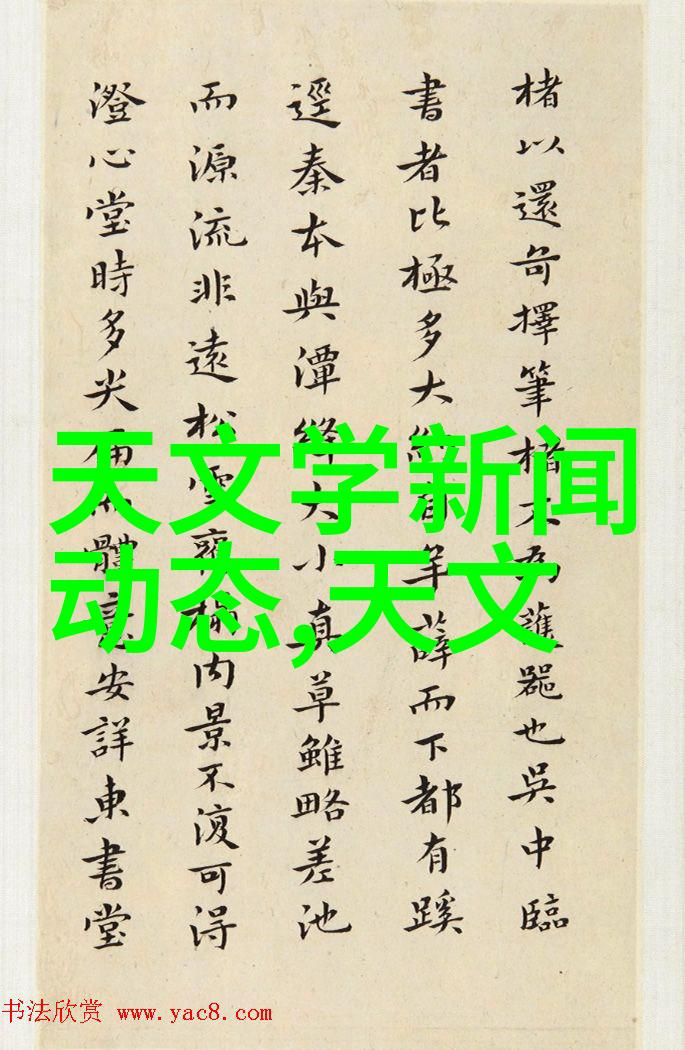 楮以還奇擇筆楮不為器也吳中臨
書者比極多大約自羊薛而下都有蹊
逕秦本與潭絳大小真草雖略差池
而源流非遠松雪齋內景不復可得
澄心堂時多尖而體意安詳東書堂
天文学新闻
动态,天文
书法欣赏 www.yac8.com